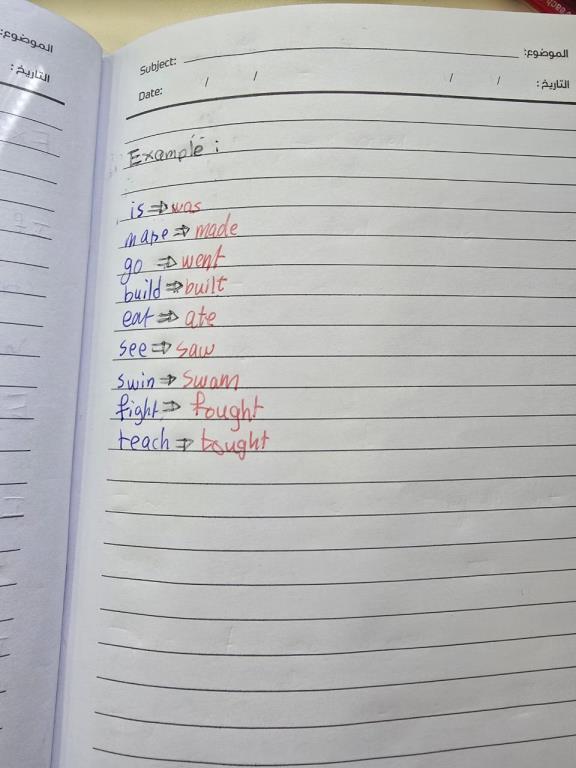 الموضوع:
التاريخ:
Subject: الموضوع:
Date: / / / / التاريخ:
Example:
is ⇒ was
mape ⇒ made
go ⇒ went
build ⇒ built
eat ⇒ ate
see ⇒ saw
swin ⇒ swam
fight ⇒ fought
teach ⇒ tought